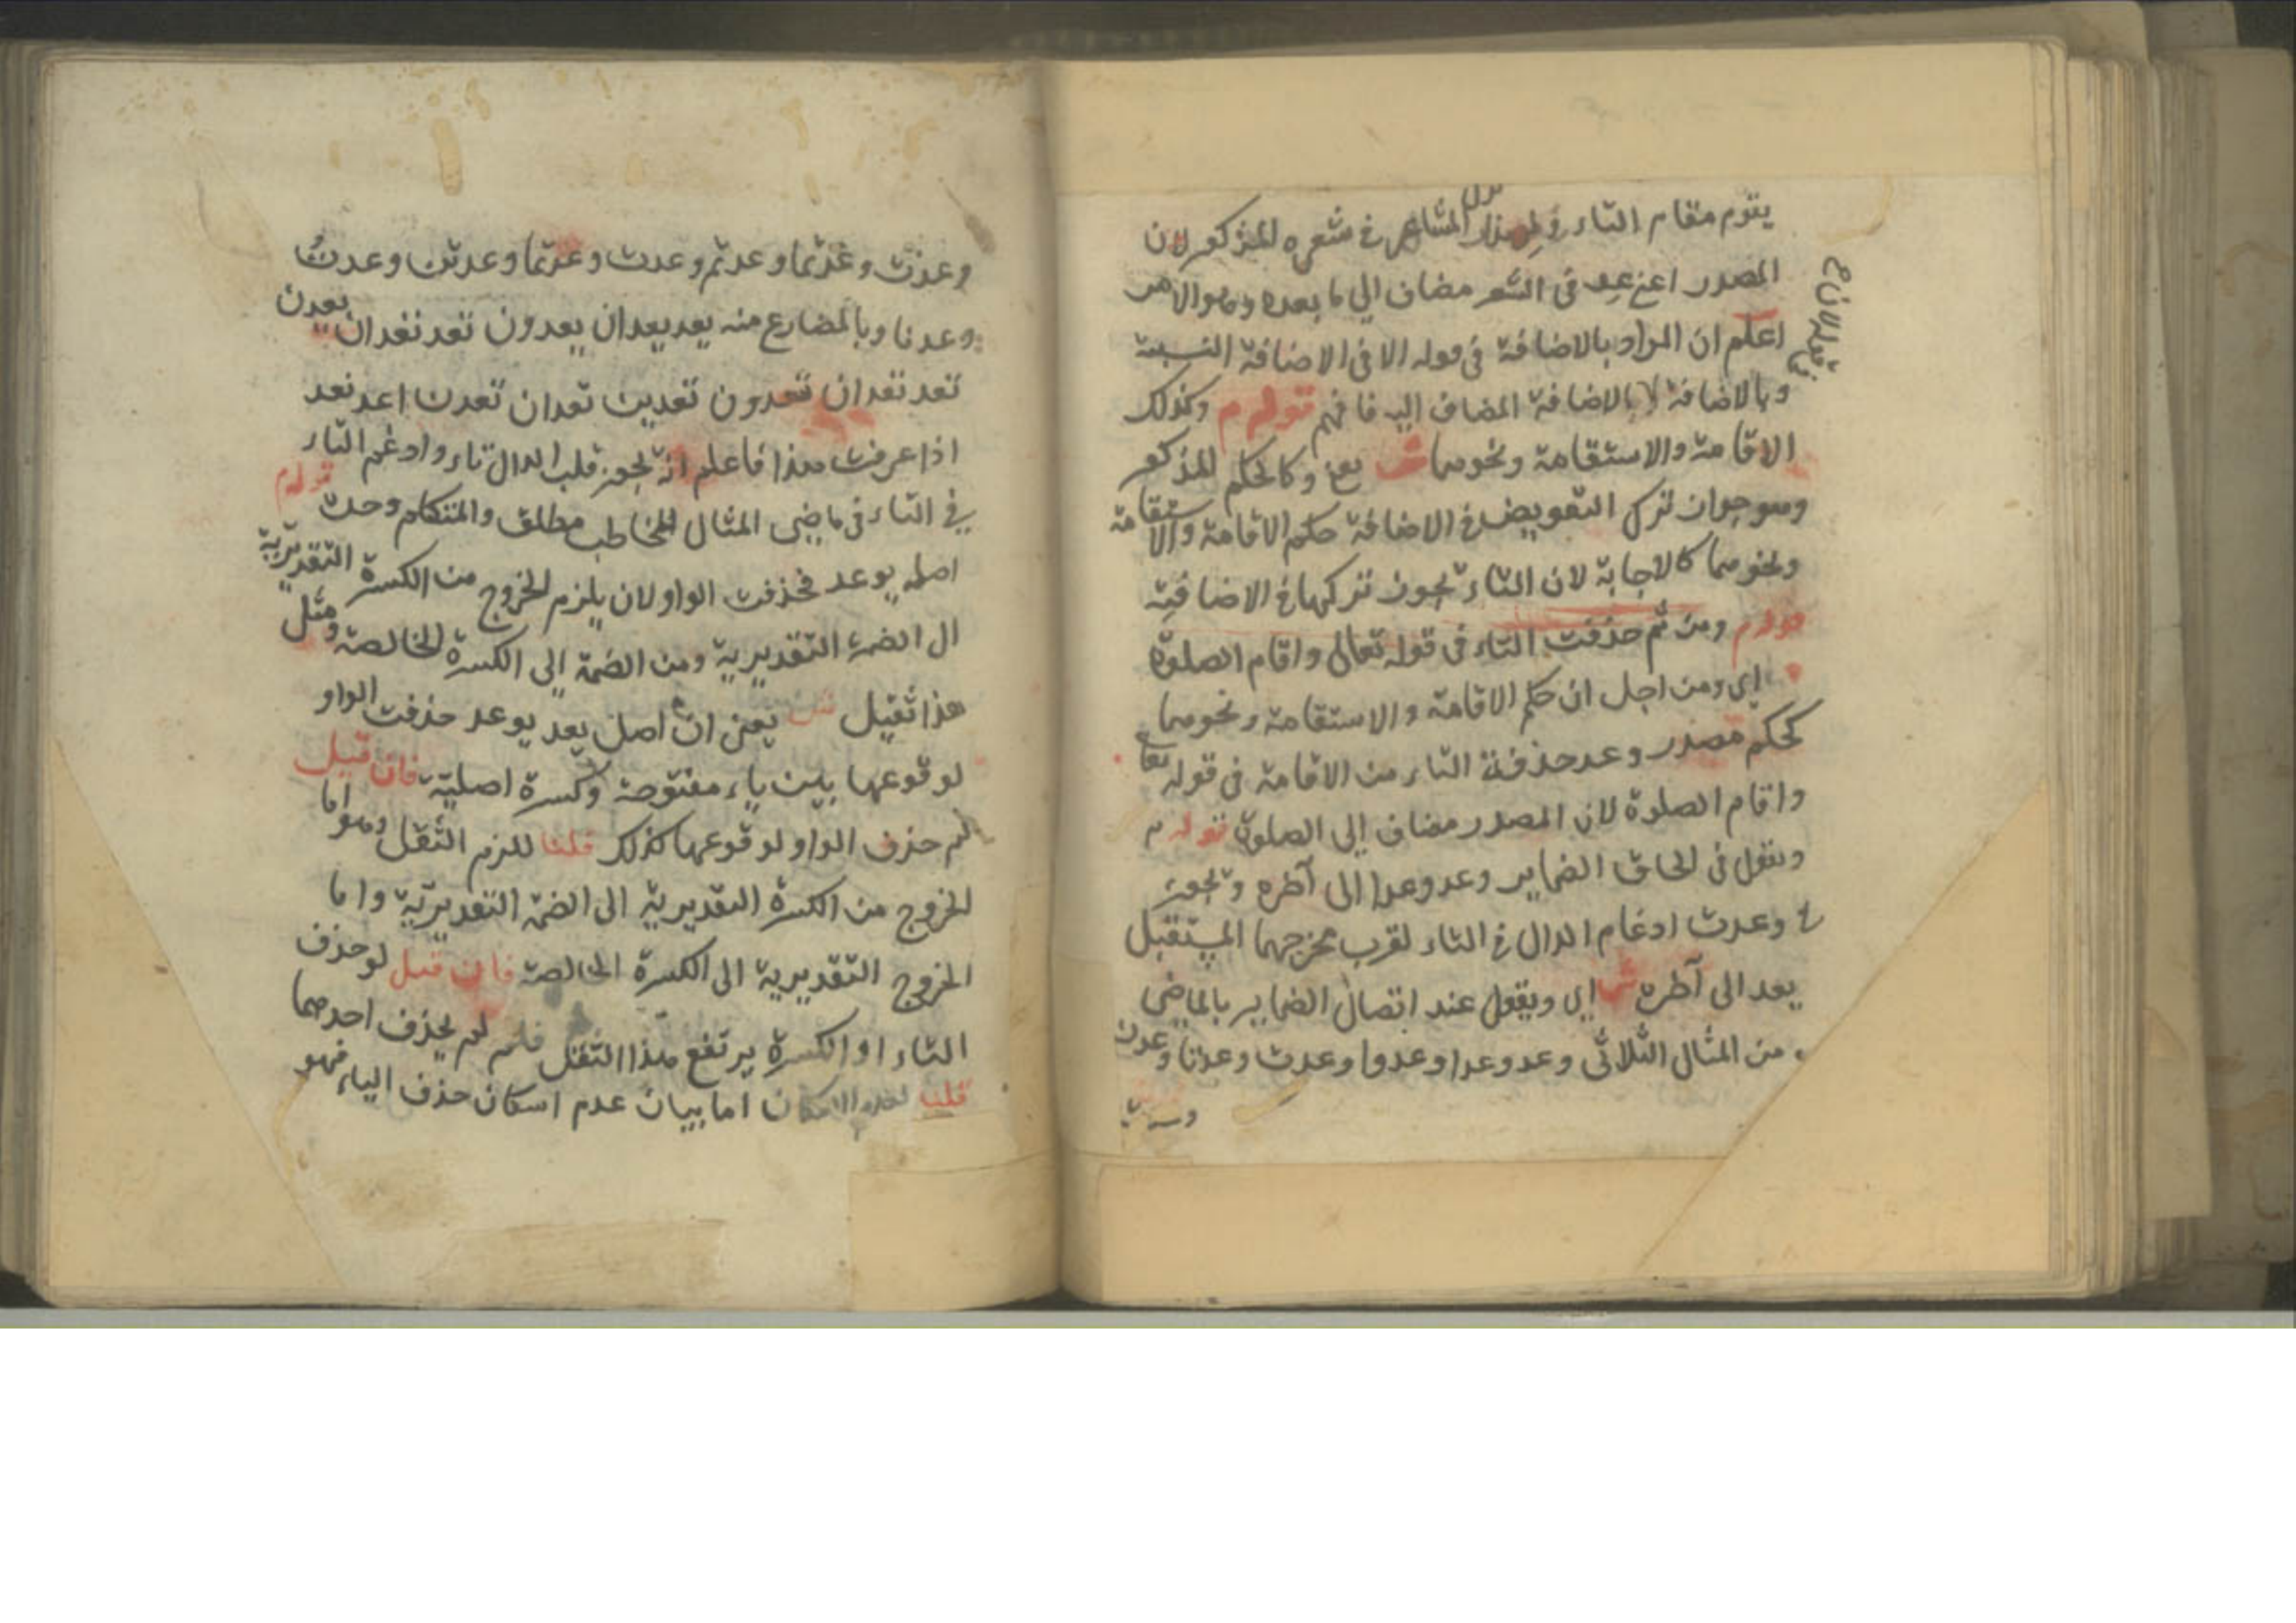 يقوم مقام التاء ولهذا ترك الشاعر في شعره المذكور لان
المصدر اعني عد في الشعر مضاف الي ما بعده وهو الامر
اعلم ان المراد بالاضافة في قوله الا في الاضافة النسبة
وبالاضافة لا بالاضافة المضاف اليه فافهم قوله م وكذلك
الاقامة والاستقامة ونحوهما ش يعني وكالحكم المذكور
وهو جواز ترك التعويض في الاضافة حكم الاقامة والاستقامة
ونحوهما كالاجابة لان التاء يجوز تركها في الاضافية
قوله م ومن ثم حذفت التاء في قوله تعالى واقام الصلوة
اي ومن اجل ان حكم الاقامة والاستقامة ونحوهما
كحكم مصدر وعد حذفة التاء من الاقامة في قوله تعا
واقام الصلوة لان المصدر مضاف إلى الصلوة قوله م
وتقول في الحاق الضماير وعد وعدا الى آخره ويجوز
في وعدت ادغام الدال في التاء لقرب مخرجهما المستقبل
يعد الى آخره ش اي ويقول عند اتصال الضماير بالماضي
من المثال الثلاثي وعد وعدا وعدوا وعدت وعدتا وعدن
وعدت وعدتما وعدتم وعدت وعدتما وعدتن وعدتُ
وعدنا وبالمضارع منه يعد يعدان يعدون تعد تعدان يعدن
تعد تعدان تعدون تعدين تعدان تعدن اعد نعد
اذا عرفت هذا فاعلم انه يجوز قلب الدال تاء وادغم التاء
في التاء في ماضي المثال المخاطب مطلق والمتكلم وحده قوله م
اصله يوعد فحذفت الواو لان يلزم الخروج من الكسرة التقديرية
الى الضمة التقديرية ومن الضمة إلى الكسرة الخالصة ومثل
هذا ثقيل ش يعني ان اصل يعد يوعد حذفت الواو
لوقوعها بين ياء مفتوحة وكسرة اصلية فان قيل
لم حذف الواو لوقوعها كذلك قلنا للزم الثقل وهو اما
الخروج من الكسرة التقديرية الى الضمة التقديرية واما
الخروج التقديرية الى الكسرة الخالصة فان قيل لو حذف
التاء او الكسرة يرتفع هذا الثقل فلم لم يحذف احدهما
قلنا لعدم الامكان اما بيان عدم اسكان حذف الياء فهو